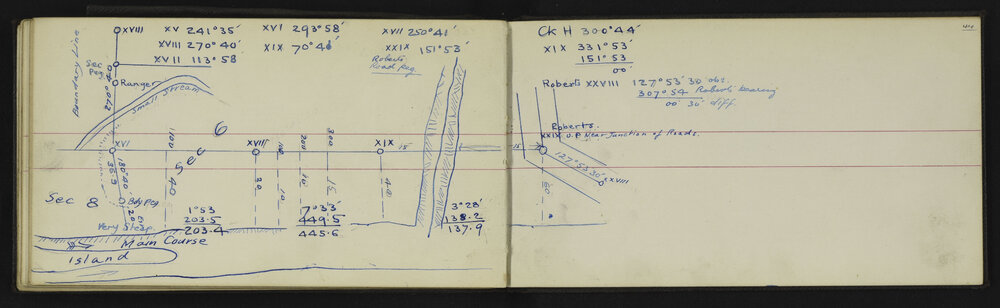 XVIII XV 241°35′ XVI 293°58′ XVII 250°41′
XVIII 270°40′ XIX 70°46′ XXIX 151°53′
XVII 113°58
Roberts
Road Peg
Boundary Line
Sec
Peg
Ranger
Small Stream
Sec 6
XVI
XVII
XIX
15
100
200
300
40
30
10
10
15
40
180°00′
Bdy Peg
Sec 8
Very Steep
1°53
203.5
203.4
7°33′
449.5
445.6
3°28′
138.2
137.9
Main Course
Island
44
Ck H 300°44′
XIX 331°53′
151°53
00
Roberts XXVIII 127°53′30 obs.
307°54 Roberts bearing
00′30″ diff.
Roberts.
XXIX O.P. Near Junction of Roads.
15
127°53′30″
XXVIII
60